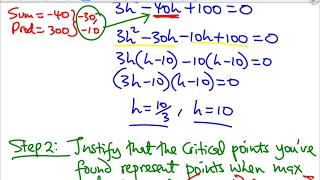 3h² - 40h + 100 = 0
Sum = -40
Prod = 300
-30,
-10
3h² - 30h - 10h + 100 = 0
3h(h-10) - 10(h-10) = 0
(3h-10)(h-10) = 0
h = 10/3 , h = 10
Step 2: Justify that the critical points you've
found represent points when max